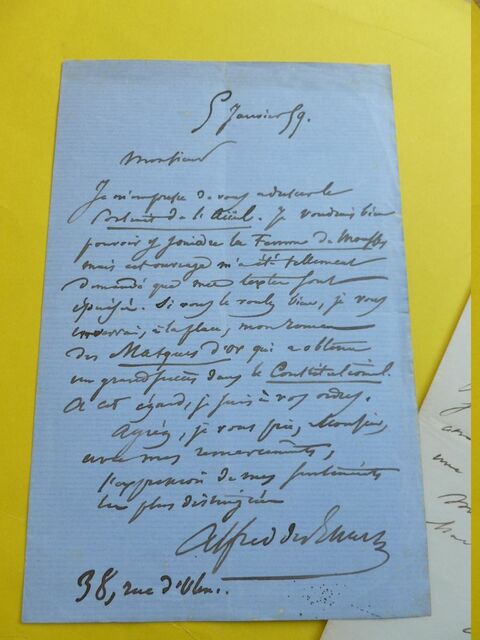 5 Janvier 59.
Monsieur
Je m'empresse de vous adresser le
Portrait de l'Aïeul. Je voudrais bien
pouvoir y joindre la Femme de
mais cet ouvrage m'a été tellement
demandé que mes sont
épuisés. Si vous le voulez bien, je vous
enverrai, à la place, mon roman
des Masques d'Or qui a obtenu
un grand succès dans le Constitutionnel.
A cet égard, je suis à vos ordres.
Agréez, je vous prie, Monsieur,
avec mes remerciements,
l'expression de mes sentiments
les plus distingués
Alfred des Essarts
38, rue d'Ulm.